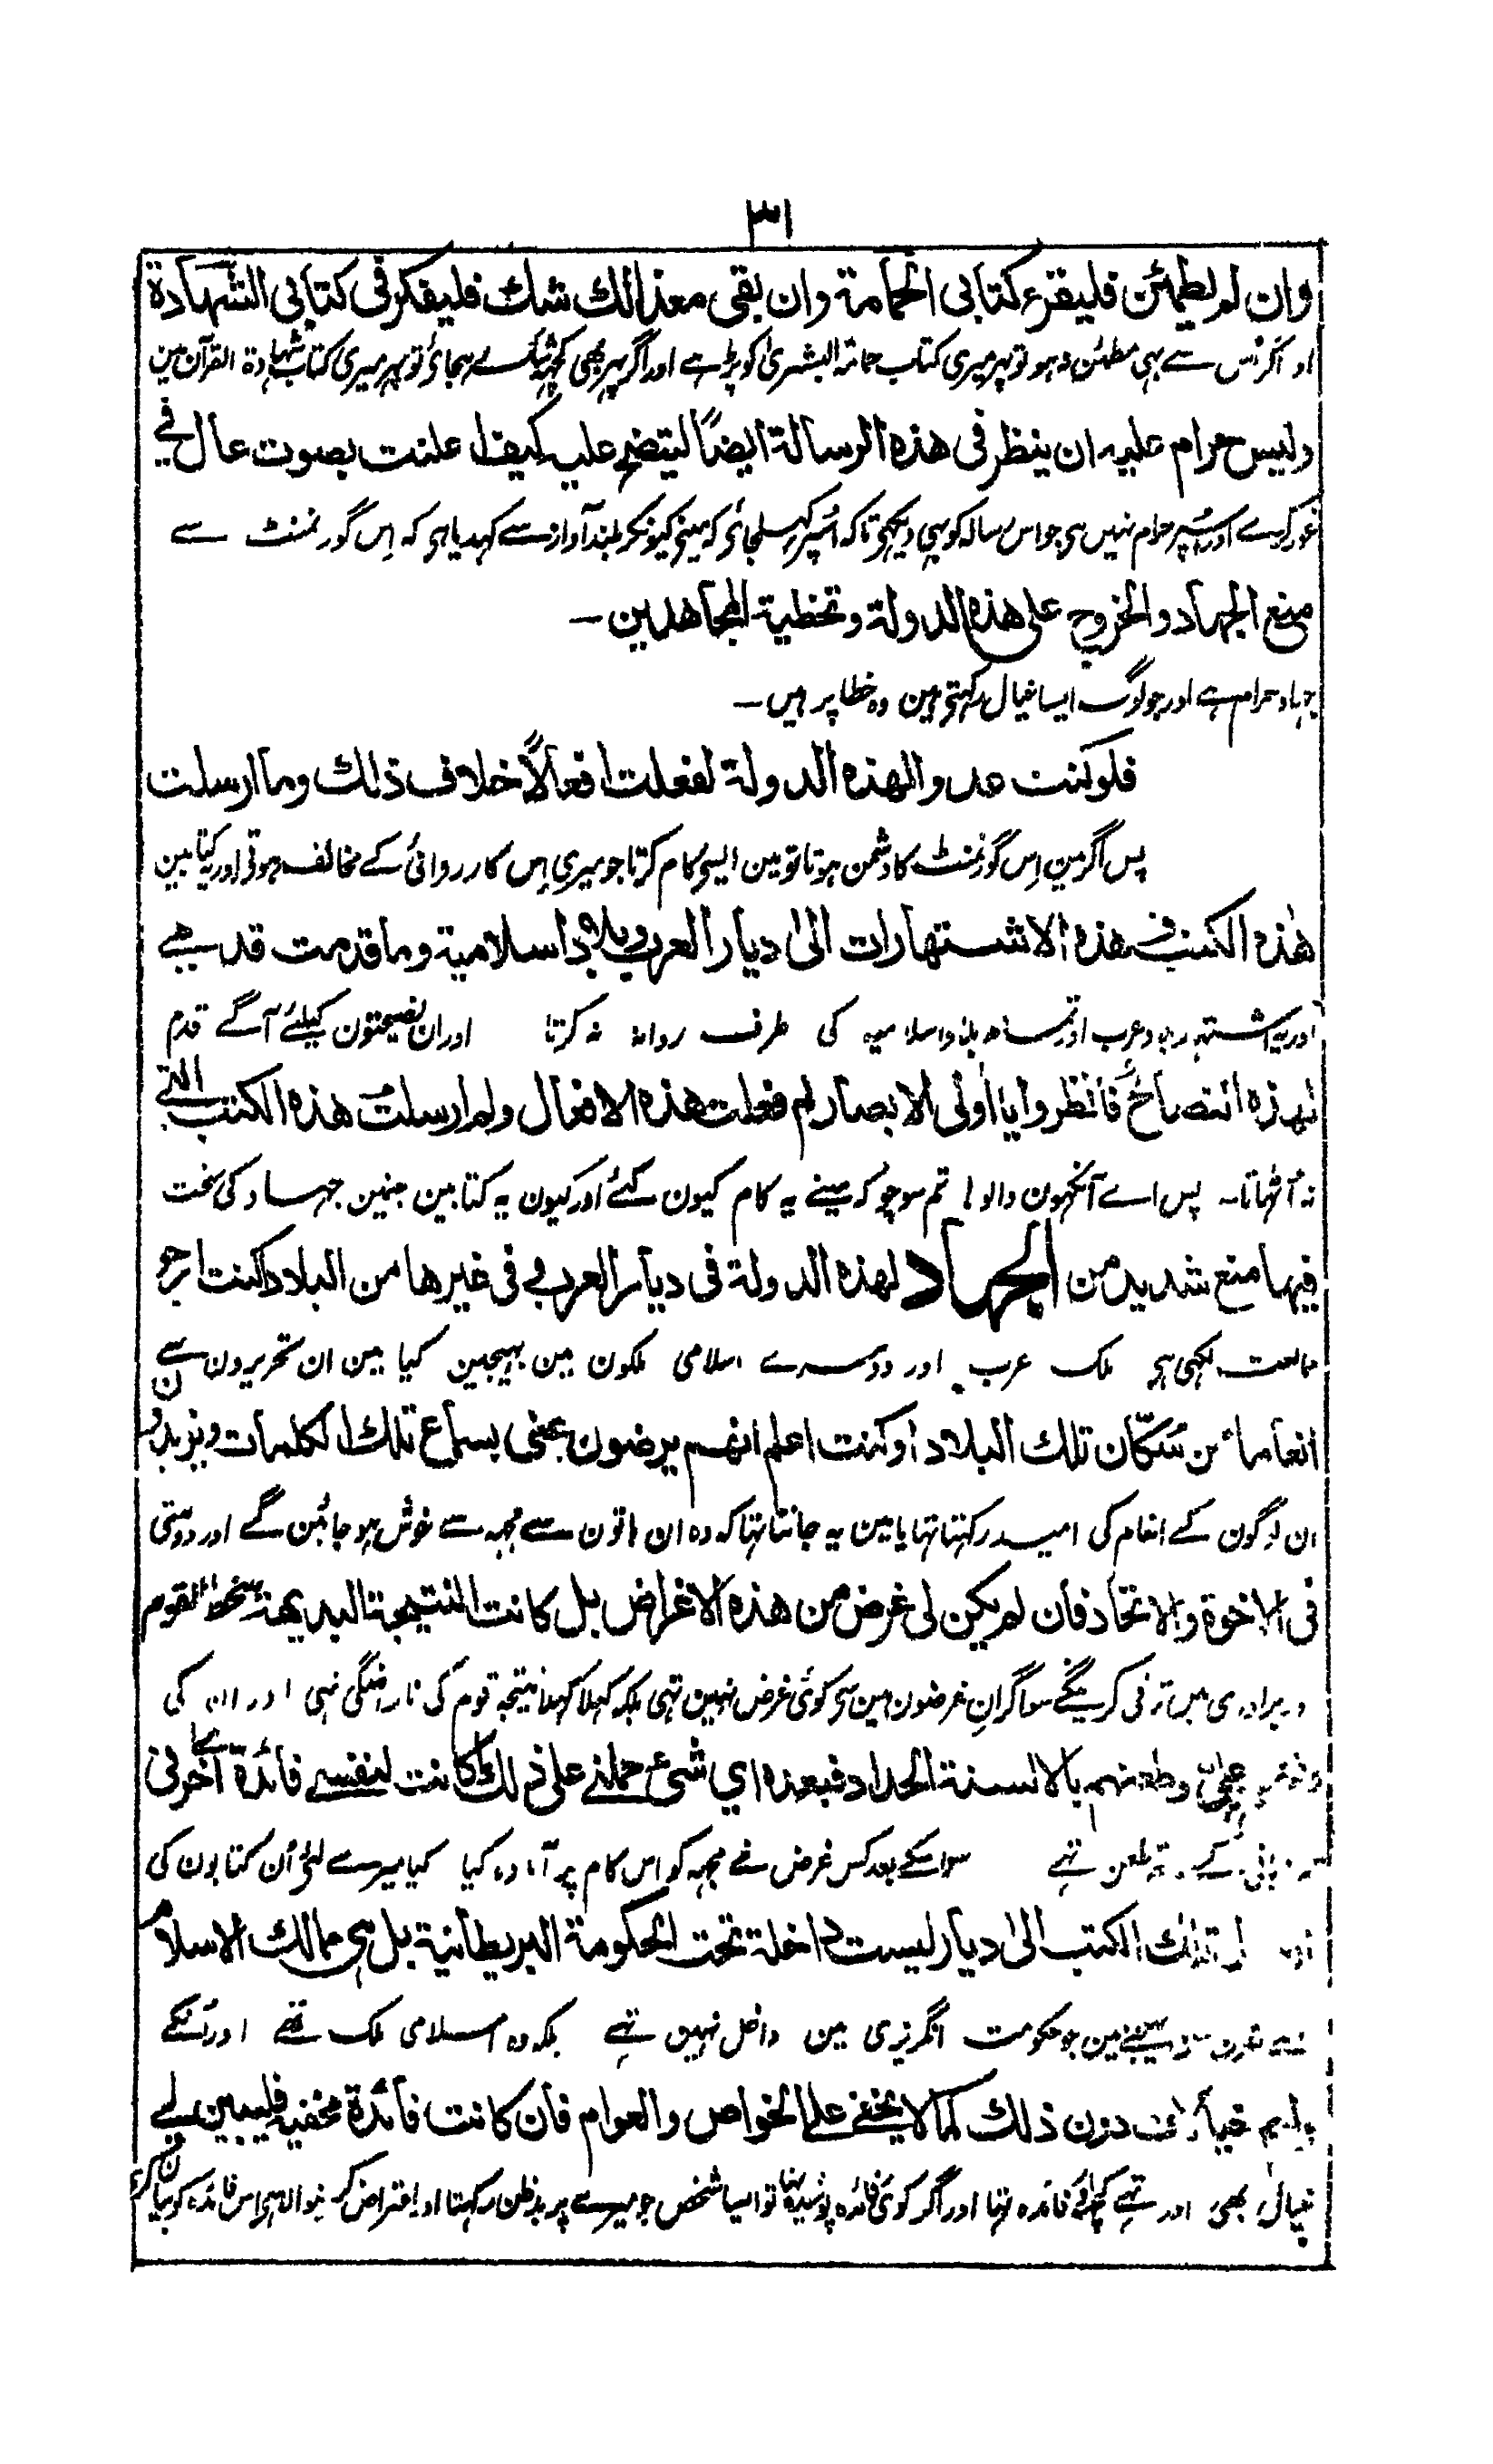 ٣١
وان لم يطمئن فليقرء كتابى الحمامة وان بقى معذالك شك فليفكر فى كتابى الشهادة
اور اگر اس سے بہی مطمئن نہ ہو تو پہر میری کتاب حمامۃ البشریٰ کو پڑہے اور اگر پہر بھی کچہ شک رہجائے تو پہر میری کتاب شہادۃ القرآن مین
وليس حرام عليه ان ينظر فى هذه الرسالة ايضًا ليتضح عليه كيف اعلنت بصوت عال فى
غور کرے اور اسپر حرام نہیں ہی جو اس رسالہ کو بہی دیکہی تاکہ اسپر کہل جائے کہ مینے کیونکر بلند آواز سے کہدیا ہی کہ اِس گورنمنٹ سے
منع الجهاد والخروج على هذه الدولة وتخطية المجاهدين ـ
جہاد حرام ہے اور جو لوگ ایسا خیال رکہتی ہین وہ خطا پر ہیں ـ
فلو كنت عدوا لهذه الدولة لفعلت افعالًا خلاف ذالك وما ارسلت
پس اگر مین اِس گورنمنٹ کا دشمن ہوتا تو مین ایسی کام کرتا جو میری اِس کارروائی کے مخالف ہوتی اور یہ کتابین
هٰذه الكتب و هذه الاشتهارات الىٰ ديار العرب وبلاد اسلامية وما قدمت قدمى
اور یہ اشتہار دیار عرب اور تمام بلاد اسلامیہ کی طرف روانہ نہ کرتا اور ان نصیحتون کیلئے آگے قدم
لهذه النصائح فانظروا يا اولى الابصار لم فعلت هذه الافعال ولم ارسلت هذه الكتب التى
نہ اُٹہاتا۔ پس اے آنکہون والو! تم سوچو کہ مینے یہ کام کیون کئے اور کیون یہ کتابین جنمین جہاد کی سخت
فيها منع شديد من الجهاد لهذه الدولة فى ديار العرب و فى غيرها من البلاد أكنت ارجو
ممانعت لکہی ہی ملک عرب اور دوسرے اسلامی ملکون مین بہیجین کیا مین ان تحریرون سے
انعاما من سُكّان تلك البلاد او كنت اعلم انهم يرضون عنى بسماع تلك الكلمات ويزيدون
ان لوگون کے انعام کی امید رکہتا تہا یا مین یہ جانتا تہا کہ وہ ان باتون سے مجہہ سے خوش ہو جائین گے اور دوستی
فى الاخوة والاتحاد فان لم يكن لى غرض من هذه الاغراض بل كانت النتيجة البديهة سخط القوم
و برادری میں ترقی کرینگے سو اگر اِن غرضون مین سی کوئی غرض نہین تہی بلکہ کہلا کہلا نتیجہ قوم کی ناراضگی تہی اور ان کی
وطعنهم بالالسنة الحداد فبعده اي شئ حملنى على ذلك أكانت لنفسى فائدة اخرى فى
طعن تہے سو اسکے بعد کس غرض نے مجہہ کو اس کام پر آمادہ کیا کیا میرے لئی اُن کتابون کی
تلك الكتب الىٰ ديار ليست داخلة تحت الحكومة البريطانية بل هى ممالك الاسلام
بہیجنے مین جو حکومت انگریزی مین داخل نہیں تہے بلکہ وہ اسلامی ملک تہے اور اُنکے
دون ذلك كما لا يخفى على الخواص والعوام فان كانت فائدة مخفية فليبين لى
خیال بھی اور تہے کچھ فائدہ تہا اور اگر کوئی فائدہ پوشیدہ تہا تو ایسا شخص جو میرے پر بدظن رکہتا اور اعتراض کرنیوالا ہی اس فائدہ کو بیان کرے